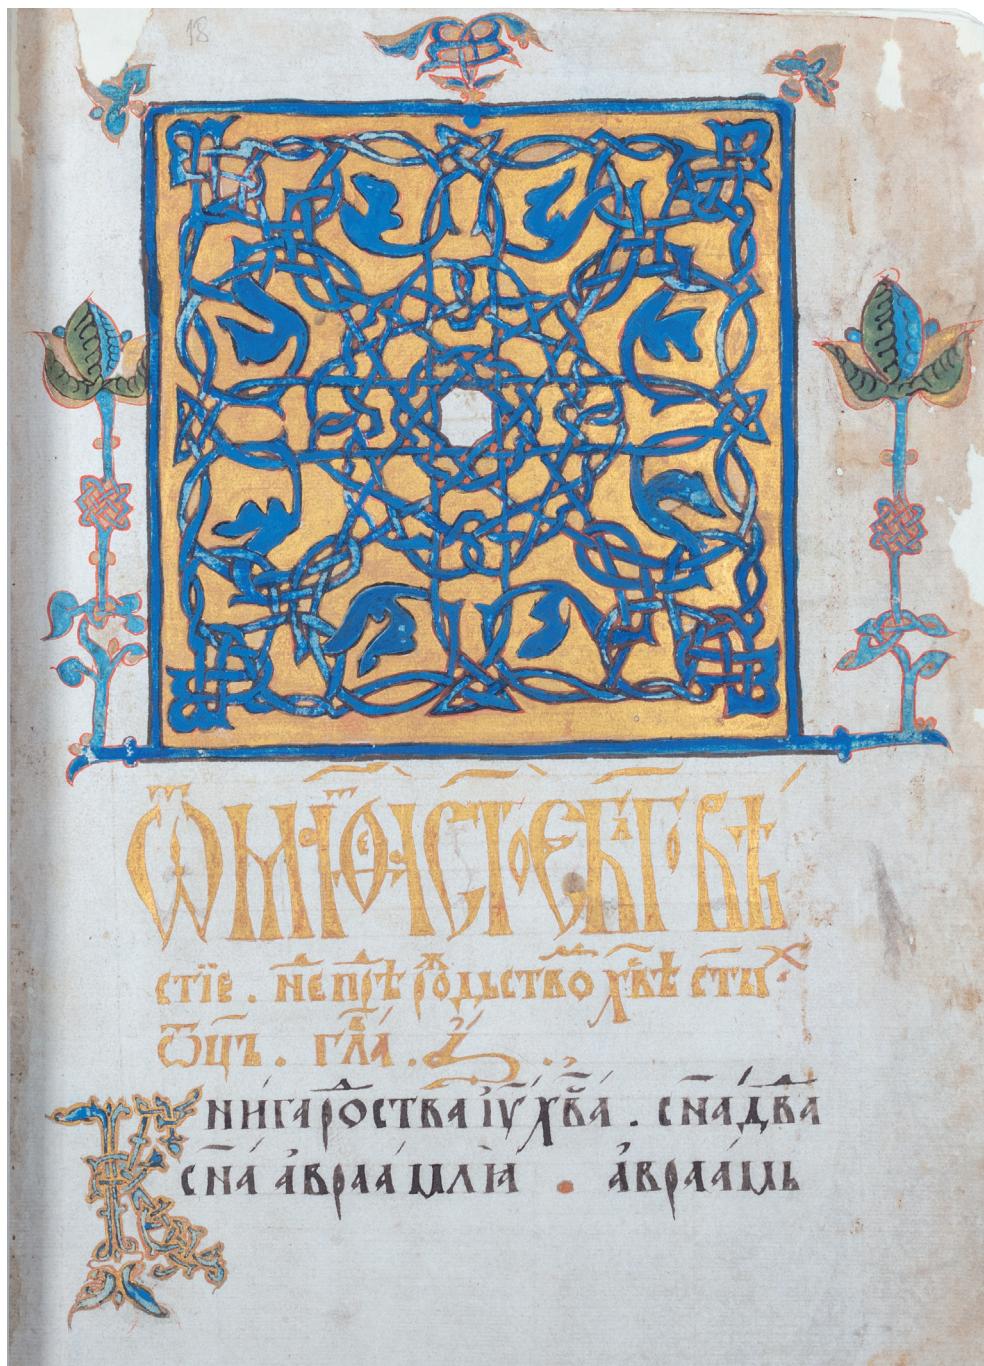 18
ѿ мⷮѳеа ст҃ое бл҃гов̾ѣ
стїе . нⷣе прⷣѣ рѡжⷣьство хв҃ѣ ст҃ыⷯ
ѿц҃ъ . глаⷡ . а҃ .
Книга роⷣства і҃у х҃в̾а . сн҃а двⷣа
сн҃а авраамлꙗ . авраамь